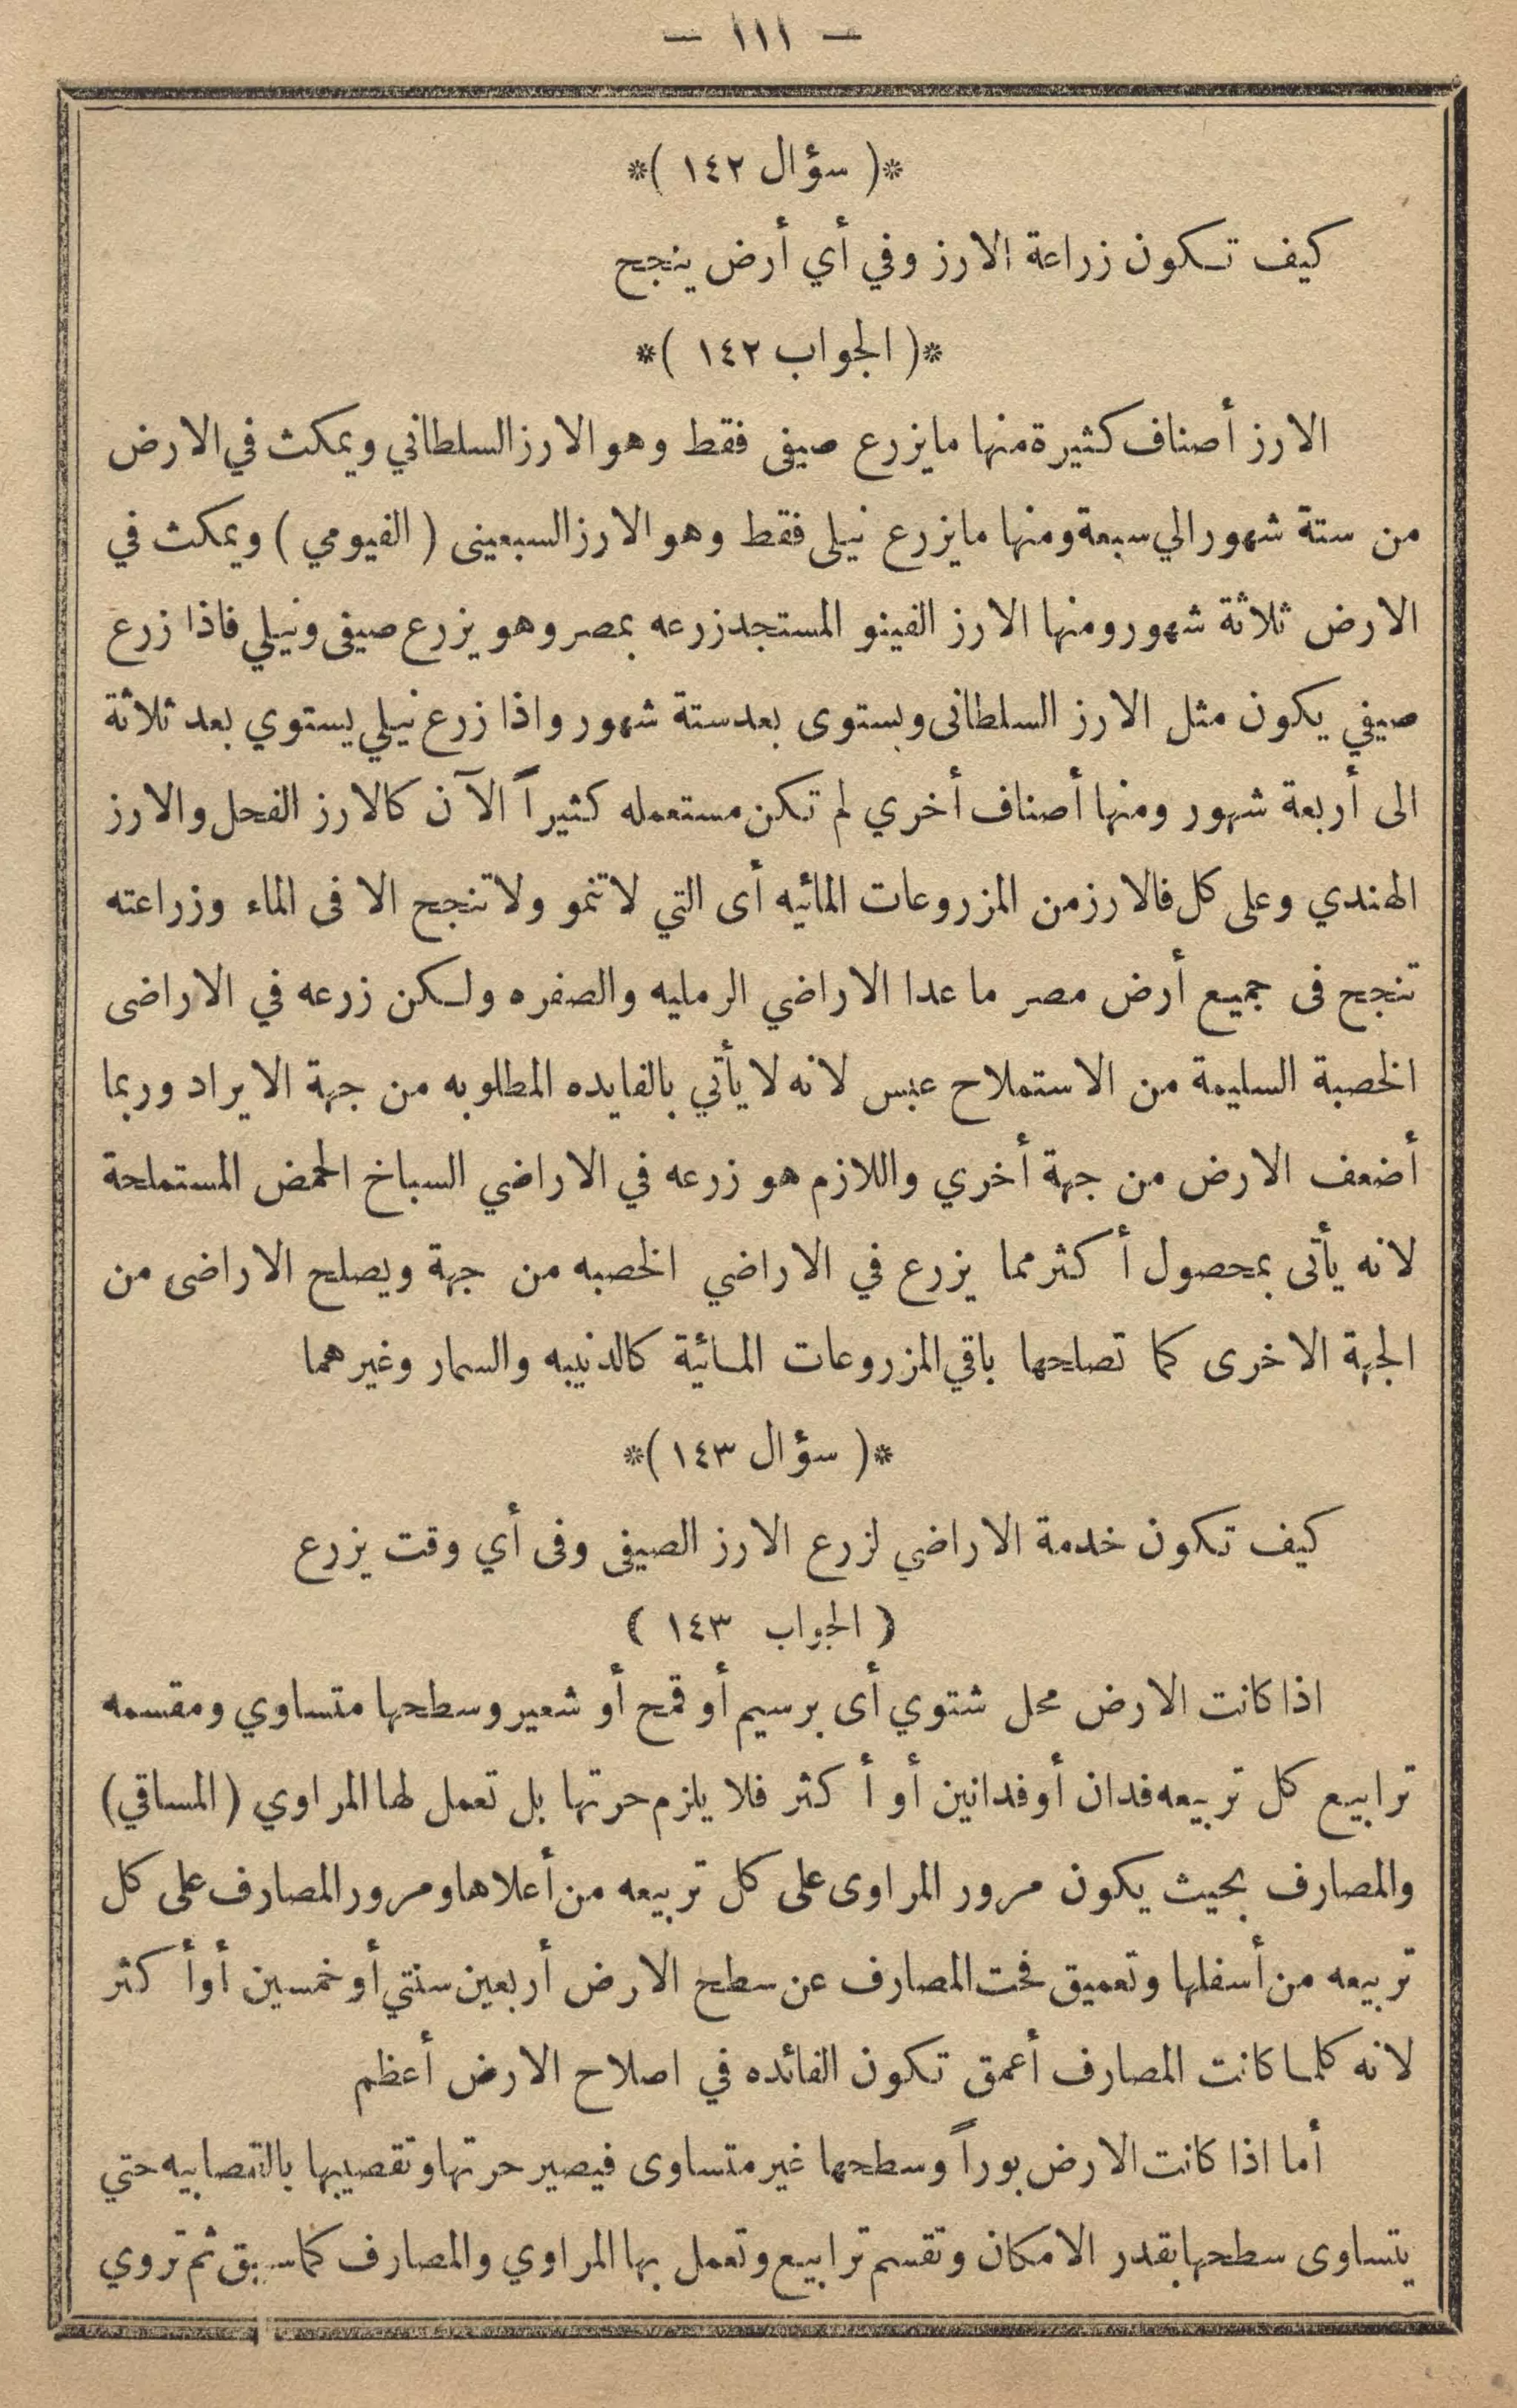 — ١١١ —
*( سؤال ١٤٢ )*
كيف تكون زراعة الارز وفي أي أرض ينجح
*( الجواب ١٤٢ )*
الارز أصناف كثيرة منها مايزرع صيفى فقط وهو الارز السلطاني ويمكث في الارض
من ستة شهور الي سبعة ومنها مايزرع نيلى فقط وهو الارز السبعينى ( الفيومي ) ويمكث في
الارض ثلاثة شهور ومنها الارز الفينو المستجد زرعه بمصر وهو يزرع صيفى ونيلي فاذا زرع
صيفي يكون مثل الارز السلطانى ويستوى بعد ستة شهور واذا زرع نيلي يستوي بعد ثلاثة
الى أربعة شهور ومنها أصناف أخري لم تكن مستعمله كثيراً الآن كالارز الفحل والارز
الهندي وعلى كل فالارز من المزروعات المائيه أى التي لاتنمو ولاتنجح الا فى الماء وزراعته
تنجح فى جميع أرض مصر ما عدا الاراضي الرمليه والصفره ولكن زرعه في الاراضى
الخصبة السليمة من الاستملاح عبس لانه لا يأتي بالفايده المطلوبه من جهة الايراد وربما
أضعف الارض من جهة أخري واللازم هو زرعه في الاراضي السباخ الحمض المستملحة
لانه يأتى بمحصول أكثر مما يزرع في الاراضي الخصبه من جهة ويصلح الاراضى من
الجهة الاخرى كما تصلحها باقي المزروعات المائية كالدنيبه والسمار وغيرهما
*( سؤال ١٤٣ )*
كيف تكون خدمة الاراضي لزرع الارز الصيفى وفى أي وقت يزرع
( الجواب ١٤٣ )
اذا كانت الارض محل شتوي أى برسيم أو قمح أو شعير وسطحها متساوي ومقسمه
ترابيع كل تربيعه فدان أو فدانين أو أكثر فلا يلزم حرثها بل تعمل لها المراوي ( المساقي )
والمصارف بحيث يكون مرور المراوى على كل تربيعه من أعلاها ومرور المصارف على كل
تربيعه من أسفلها وتعميق فحت المصارف عن سطح الارض أربعين سنتي أو خمسين أو أكثر
لانه كلما كانت المصارف أعمق تكون الفائده في اصلاح الارض أعظم
أما اذا كانت الارض بوراً وسطحها غير متساوى فيصير حرثها وتقصيبها بالقصابيه حتي
يتساوى سطحها بقدر الامكان وتقسم ترابيع وتعمل بها المراوي والمصارف كما سبق ثم تروي